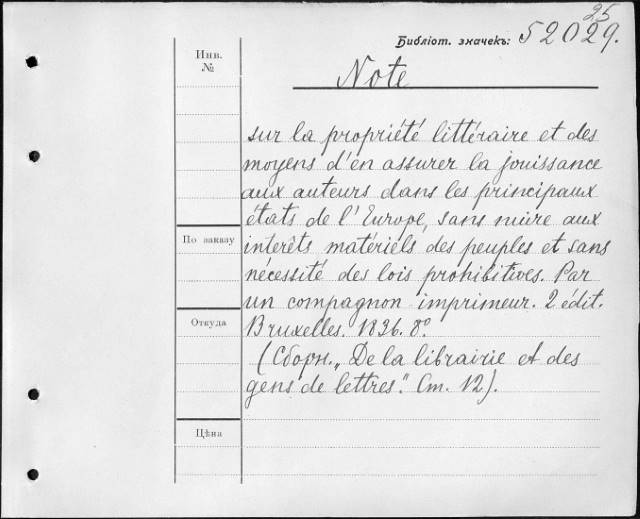 25
Библіот. значекъ: 52029.
Инв. №
Note
sur la propriété littéraire et des
moyens d'en assurer la jouissance
aux auteurs dans les principaux
états de l'Europe, sans nuire aux
По заказу
interêts matériels des peuples et sans
nécessité des lois prohibitives. Par
un compagnon imprimeur. 2 édit.
Откуда
Bruxelles. 1836. 8º.
(Сборн. „De la librairie et des
gens de lettres." Ст. 12).
Цѣна